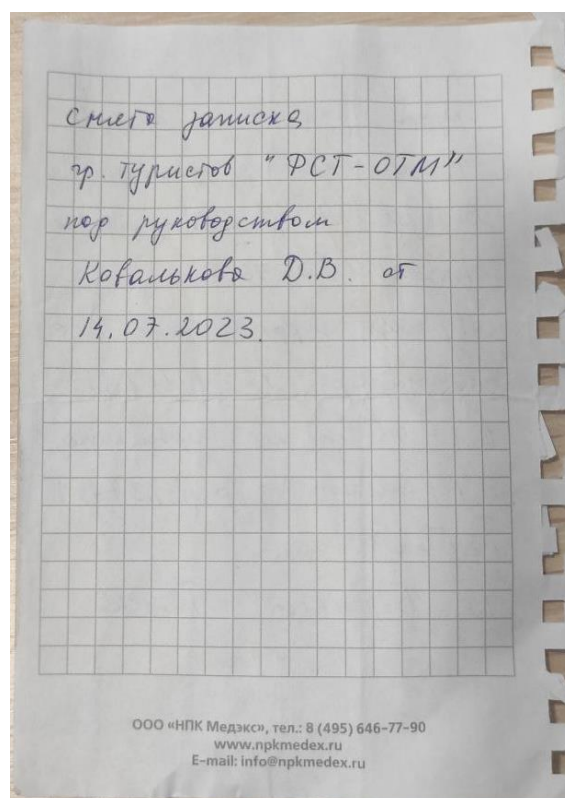 Снята записка
гр. туристов "ФСТ-ОТМ"
под руководством
Ковалькова Д.В. от
14.07.2023.
ООО «НПК Медэкс», тел.: 8 (495) 646-77-90
www.npkmedex.ru
E-mail: info@npkmedex.ru